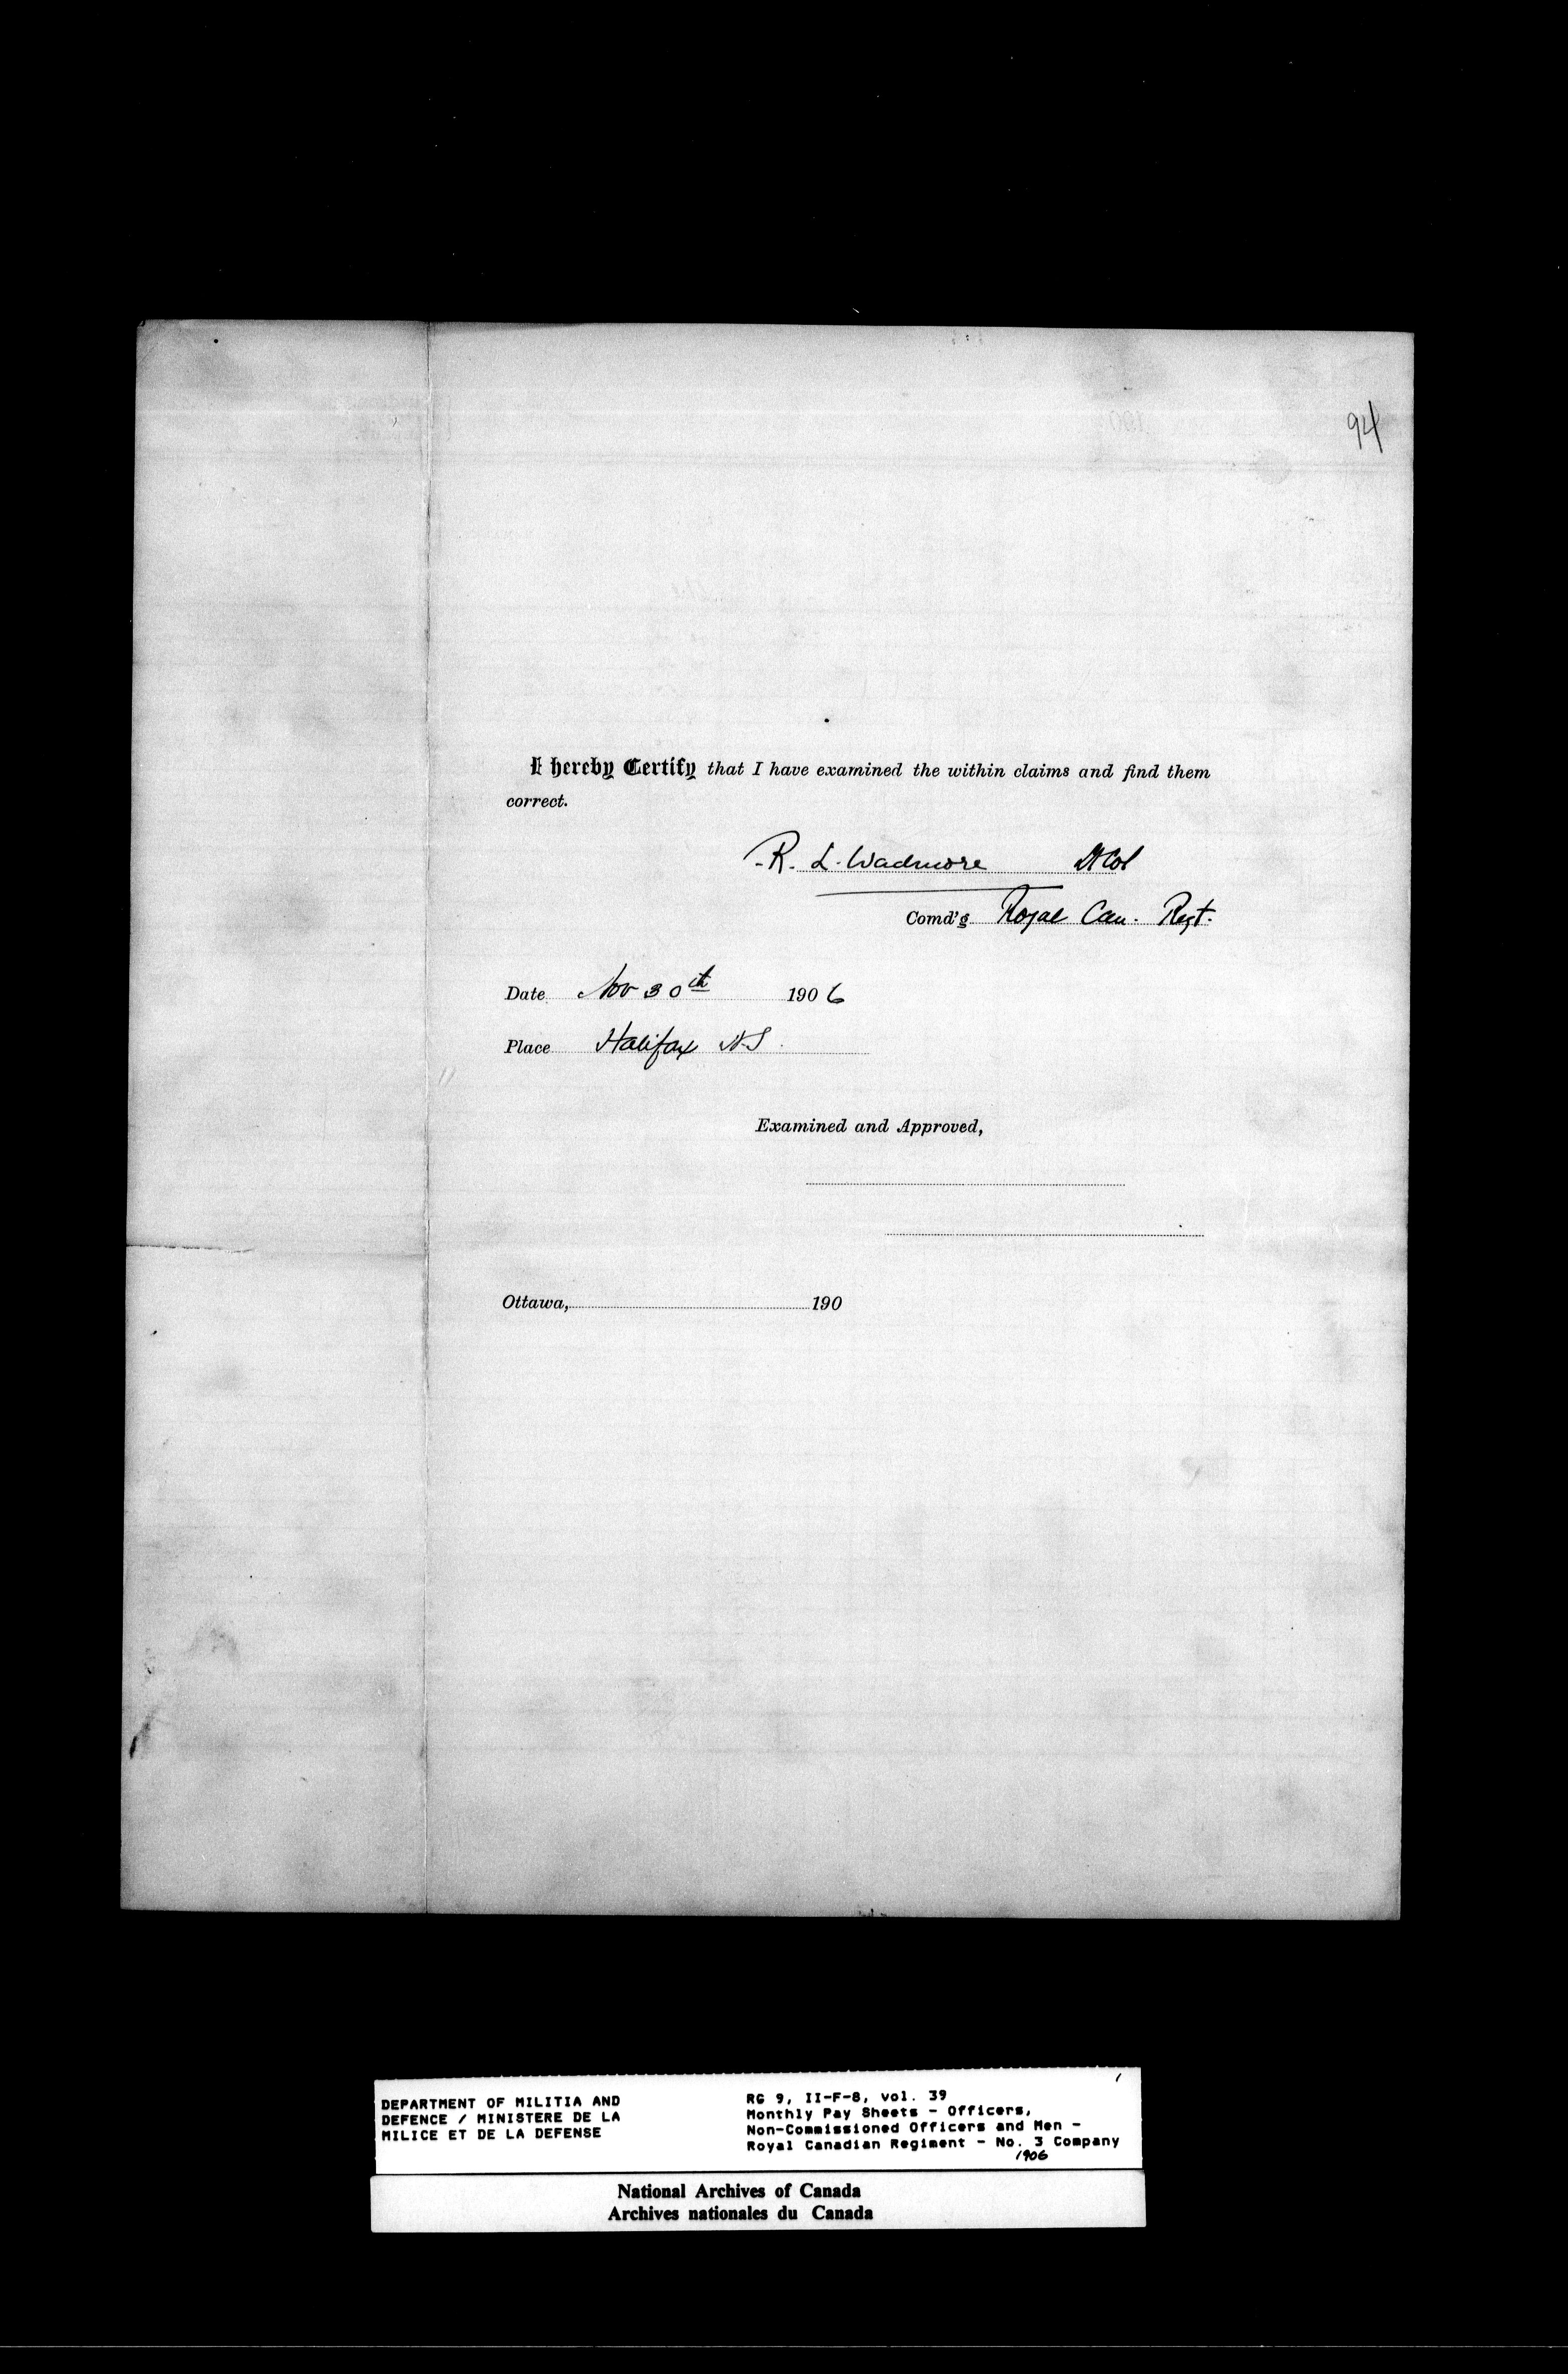 94
I hereby Certify that I have examined the within claims and find them
correct.
R. L. Wadmore Lt Col
Comd'g Royal Can. Regt.
Date Nov 30th 1906
Place Halifax NS
Examined and Approved,
Ottawa, 190
DEPARTMENT OF MILITIA AND
DEFENCE / MINISTERE DE LA
MILICE ET DE LA DEFENSE
RG 9, II-F-8, vol. 39
Monthly Pay Sheets - Officers,
Non-Commissioned Officers and Men -
Royal Canadian Regiment - No. 3 Company
1906
National Archives of Canada
Archives nationales du Canada